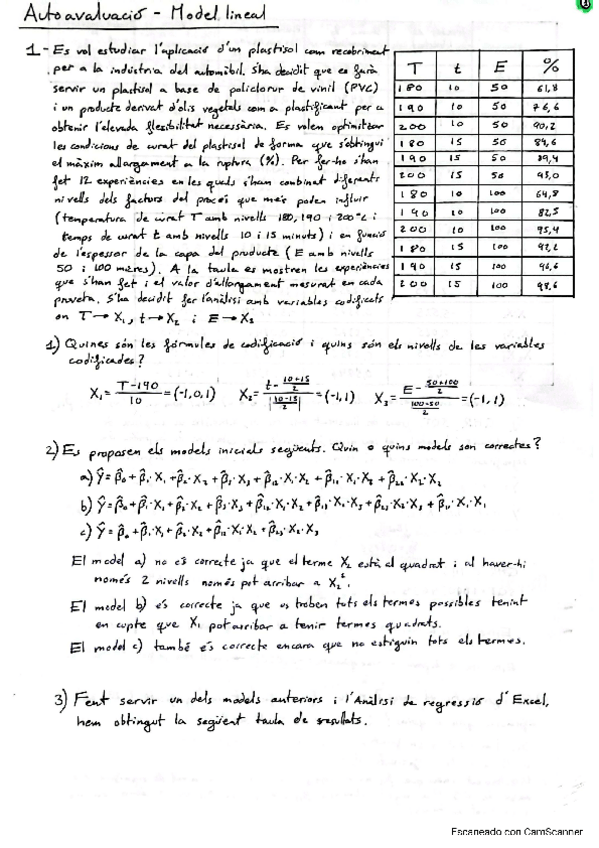 Autoavaluació - Model lineal
1.- Es vol estudiar l'aplicació d'un plastisol com recobriment
per a la indústria del automòbil. S'ha decidit que es farà
servir un plastisol a base de policlorur de vinil (PVC)
i un producte derivat d'olis vegetals com a plastificant per a
obtenir l'elevada flexibilitat necessària. Es volen optimitzar
les condicions de curat del plastisol de forma que s'obtingui
el màxim allargament a la ruptura (%). Per fer-ho s'han
fet 12 experiències en les quals s'han combinat diferents
nivells dels factors del procés que més poden influir
(temperatura de curat T amb nivells 180, 190 i 200ºC i
temps de curat t amb nivells 10 i 15 minuts) i en funció
de l'espessor de la capa del producte (E amb nivells
50 i 100 micres). A la taula es mostren les experiències
que s'han fet i el valor d'allargament mesurat en cada
proveta. S'ha decidit fer l'anàlisi amb variables codificats
on T → X₁, t → X₂ i E → X₃
T t E %
180 10 50 61,8
190 10 50 76,6
200 10 50 90,2
180 15 50
190 15 50
200 15 50 93,0
180 10 100 64,8
190 10 100 82,5
200 10 100 95,4
180 15 100
190 15 100 96,6
200 15 100 98,6
1) Quines són les fórmules de codificació i quins són els nivells de les variables
codificades?
X₁ = (T-190)/10 = (-1,0,1) X₂ = (t - (10+15)/2)/|(10-15)/2| = (-1,1) X₃ = (E - (50+100)/2)/((100-50)/2) = (-1,1)
2) Es proposen els models inicials següents. Quin o quins models son correctes?
a) Ŷ = β̂₀ + β̂₁·X₁ + β̂₂·X₂ + β̂₃·X₃ + β̂₁₂·X₁·X₂ + β̂₁₁·X₁·X₁ + β̂₂₂·X₂·X₂
b) Ŷ = β̂₀ + β̂₁·X₁ + β̂₂·X₂ + β̂₃·X₃ + β̂₁₂·X₁·X₂ + β̂₁₃·X₁·X₃ + β̂₂₃·X₂·X₃ + β̂₁₁·X₁·X₁
c) Ŷ = β̂₀ + β̂₁·X₁ + β̂₂·X₂ + β̂₁₁·X₁·X₁ + β̂₂₃·X₂·X₃
El model a) no és correcte ja que el terme X₂ està al quadrat i al haver-hi
només 2 nivells només pot arribar a X₂¹.
El model b) és correcte ja que es troben tots els termes possibles tenint
en compte que X₁ pot arribar a tenir termes quadrats.
El model c) també és correcte encara que no estiguin tots els termes.
3) Fent servir un dels models anteriors i l'Anàlisi de regressió d'Excel,
hem obtingut la següent taula de resultats.
Escaneado con CamScanner